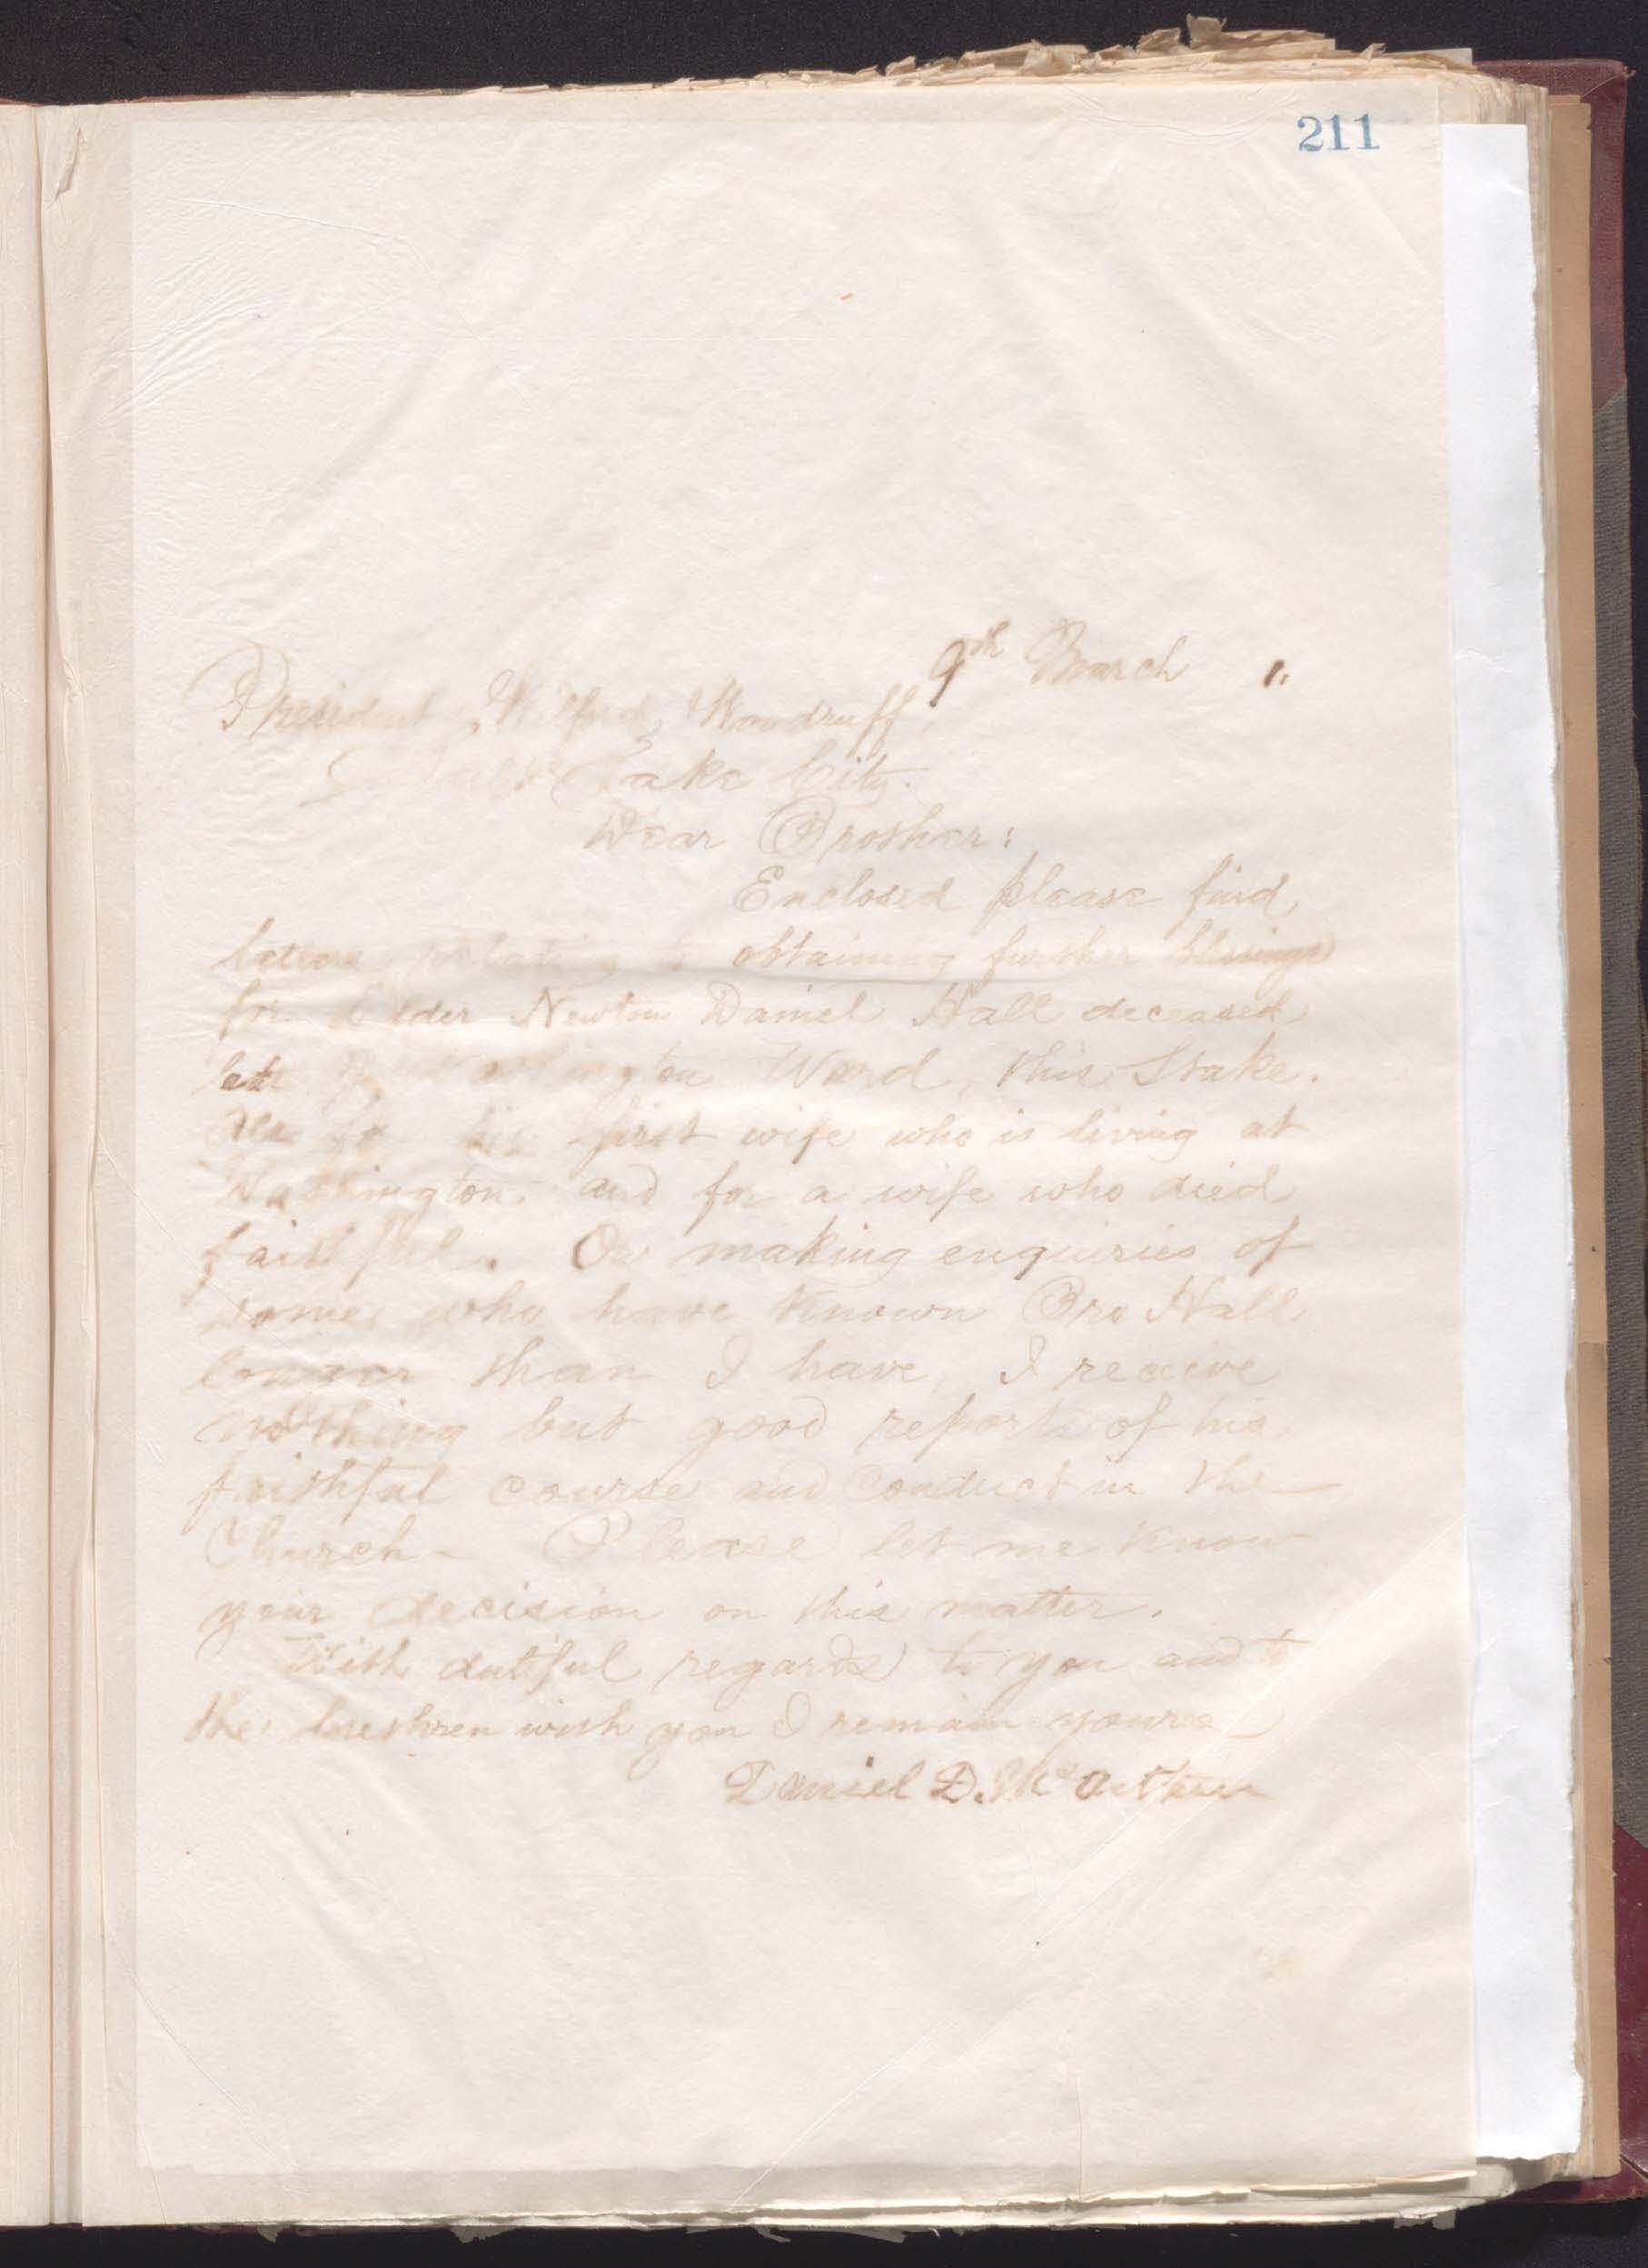 211
9th March "
President Wilford Woodruff,
Salt Lake City.
Dear Brother:
Enclosed please find
letters relating to obtaining further blessings
for Elder Newton Daniel Hall deceased
late of Washington Ward, this Stake.
Also for his first wife who is living at
Washington and for a wife who died
faithful. On making enquiries of
some who have known Bro Hall
longer than I have, I receive
nothing but good reports of his
faithful course and conduct in the
Church – Please let me know
your decision on this matter.
With dutiful regards to you and to
the brethren with you I remain yours
Daniel D. McArthur